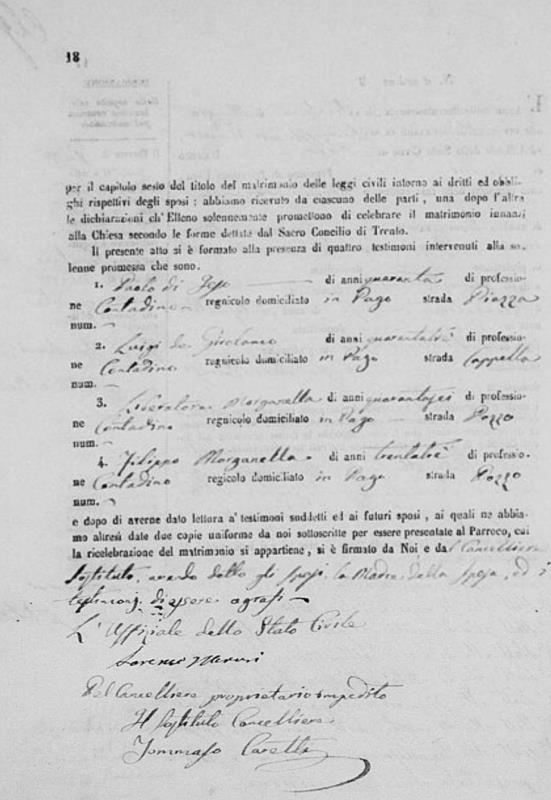 18
per il capitolo sesto del titolo del matrimonio delle leggi civili intorno ai dritti ed obbli-
ghi rispettivi degli sposi : abbiamo ricevuto da ciascuno delle parti, una dopo l'altra
le dichiarazioni ch'Elleno solennemente promettono di celebrare il matrimonio innanzi
alla Chiesa secondo le forme dettate dal Sacro Concilio di Trento.
Il presente atto si è formato alla presenza di quattro testimoni intervenuti alla so-
lenne promessa che sono.
1. Paolo di di anni quaranta di professio-
ne Contadino regnicolo domiciliato in Pago strada Piazza
num.
2. Luigi de Girolamo di anni quarantatré di professio-
ne Contadino regnicolo domiciliato in Pago strada Cappella
num.
3. Liberatore Morganella di anni quarantasei di professio-
ne Contadino regnicolo domiciliato in Pago strada Pozzo
num.
4. Filippo Morganella di anni trentatré di professio-
ne Contadino regnicolo domiciliato in Pago strada Pozzo
num.
e dopo di averne dato lettura a' testimoni suddetti ed ai futuri sposi, ai quali ne abbia-
mo altresì date due copie uniforme da noi sottoscritte per essere presentate al Parroco, cui
la ricelebrazione del matrimonio si appartiene, si è firmato da Noi e dal Cancelliere
Sostituto, avendo detto gli sposi, la Madre della sposa, ed i
testimonj di essere
L'Uffiziale dello Stato Civile
Pel Cancelliere proprietario impedito
Il Sostituto Cancelliere
Tommaso